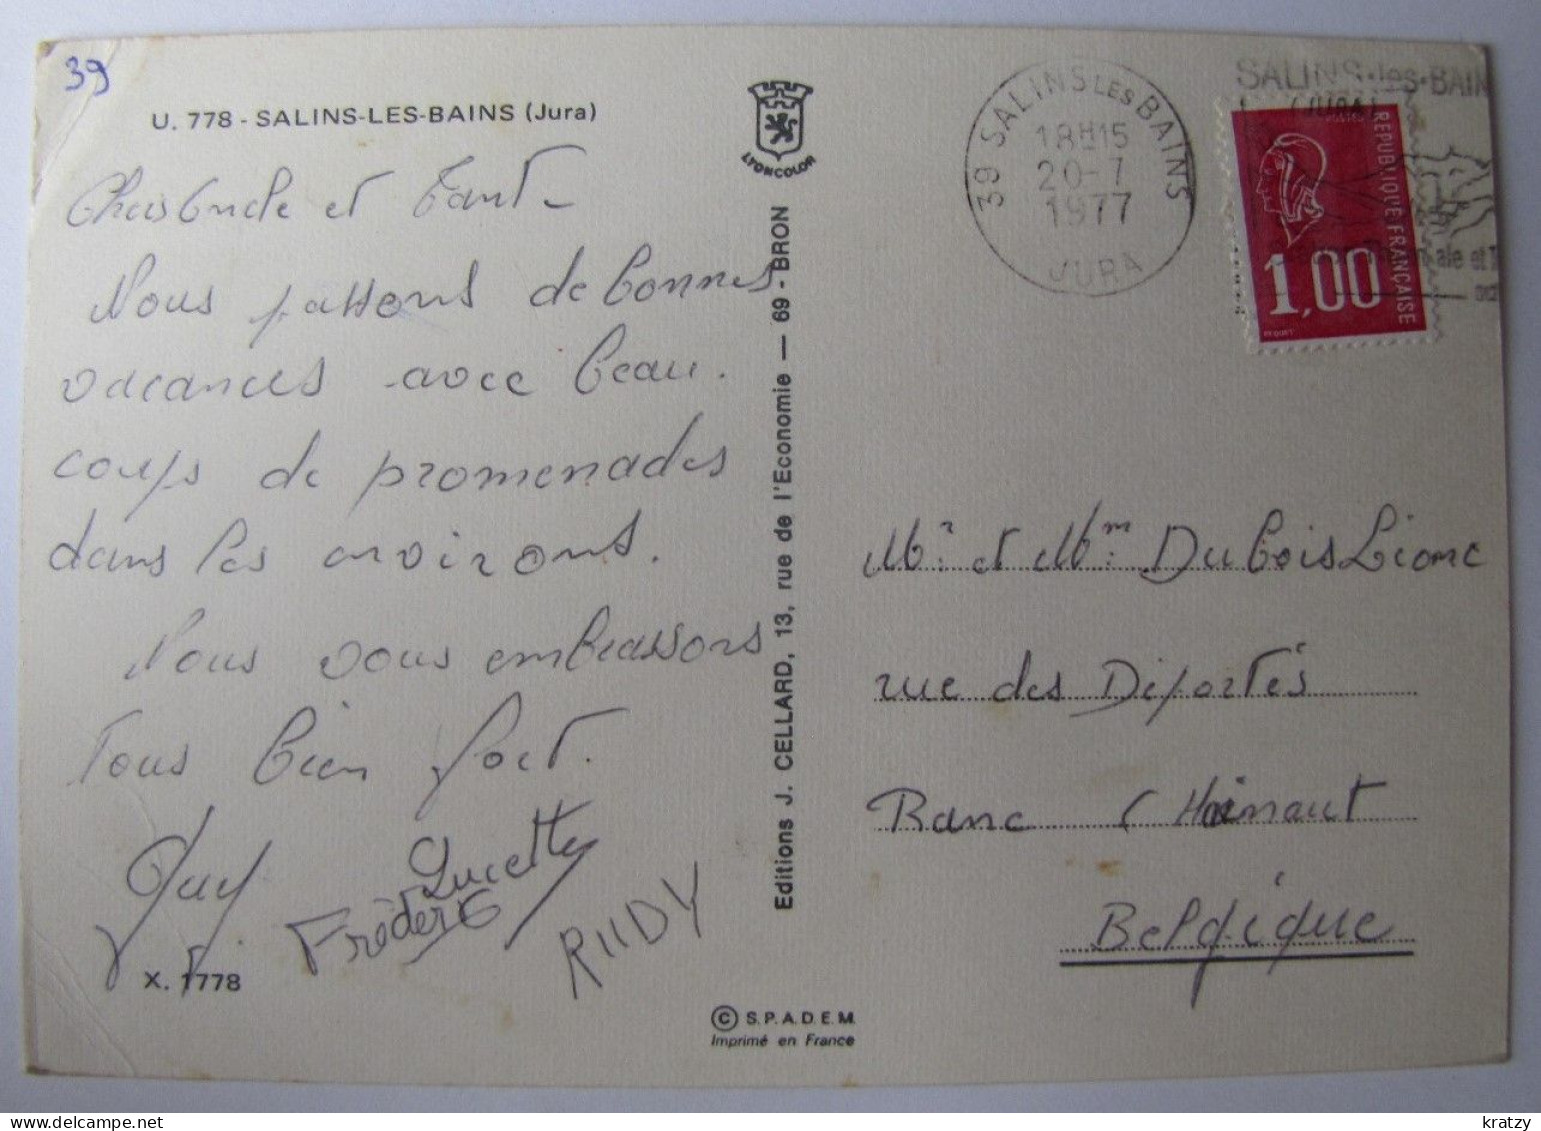 39
U. 778 - SALINS-LES-BAINS (Jura)
et Tant
Nous passons de bonnes
vacances avec beau.
coup de promenades
dans les environs.
Nous vous embrassons
Tous bien fort.
Guy
Lucette
Frédéric
RUDY
X. 1778
LYONCOLOR
Editions J. CELLARD, 13, rue de l'Economie — 69 - BRON
© S.P.A.D.E.M.
Imprimé en France
39 SALINS LES BAINS
18H15
20-7
1977
JURA
SALINS-les-BAIN
(JURA)
ale et
REPUBLIQUE FRANÇAISE
1,00
Mr et Mm Dubois Lione
rue des Déportés
Ranc (Hainaut
Belgique
delcampe.net
kratzy